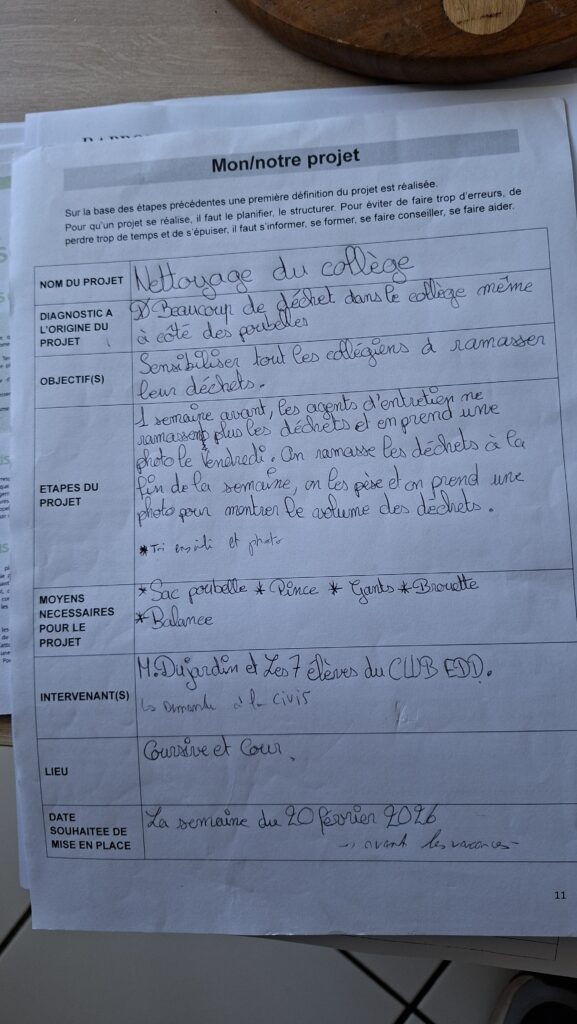 Mon/notre projet
Sur la base des étapes précédentes une première définition du projet est réalisée.
Pour qu'un projet se réalise, il faut le planifier, le structurer. Pour éviter de faire trop d'erreurs, de
perdre trop de temps et de s'épuiser, il faut s'informer, se former, se faire conseiller, se faire aider.
NOM DU PROJET
Nettoyage du collège
DIAGNOSTIC A
L'ORIGINE DU
PROJET
Beaucoup de déchet dans le collège même
à côté des poubelles
OBJECTIF(S)
Sensibiliser tout les collégiens à ramasser
leur déchets.
ETAPES DU
PROJET
1 semaine avant, les agents d'entretien ne
ramassent plus les déchets et on prend une
photo le Vendredi. On ramasse les déchets à la
fin de la semaine, on les pèse et on prend une
photo pour montrer le volume des déchets.
*Tri ensuite et photo
MOYENS
NECESSAIRES
POUR LE
PROJET
*Sac poubelle *Pince *Gants *Brouette
*Balance
INTERVENANT(S)
M.Dujardin et Les 7 élèves du CLUB EDD.
↳ Demande à la CIVIS
LIEU
Coursive et Cour.
DATE
SOUHAITEE DE
MISE EN PLACE
La semaine du 20 février 2026
→ avant les vacances-
11